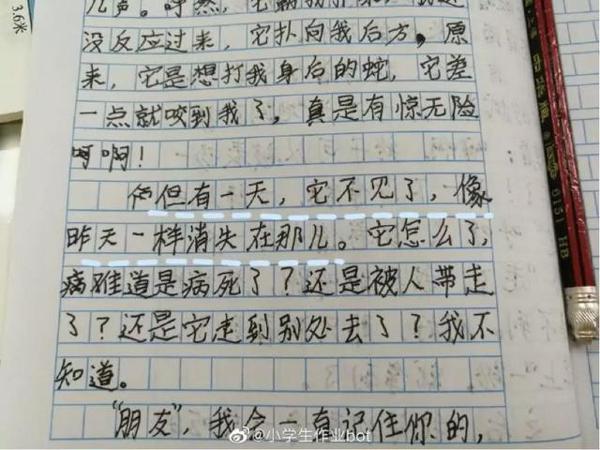 没反应过来，它扑向我后方，原
来，它是想打我身后的蛇，它差
一点就咬到我了，真是有惊无险
啊！
但有一天，它不见了，像
昨天一样消失在那儿。它怎么了，
难道是病死了？还是被人带走
了？还是它走到别处去了？我不
知道。
"朋友"，我会一直记住你的，
3.6米
6151 HB
@小学生作业bot